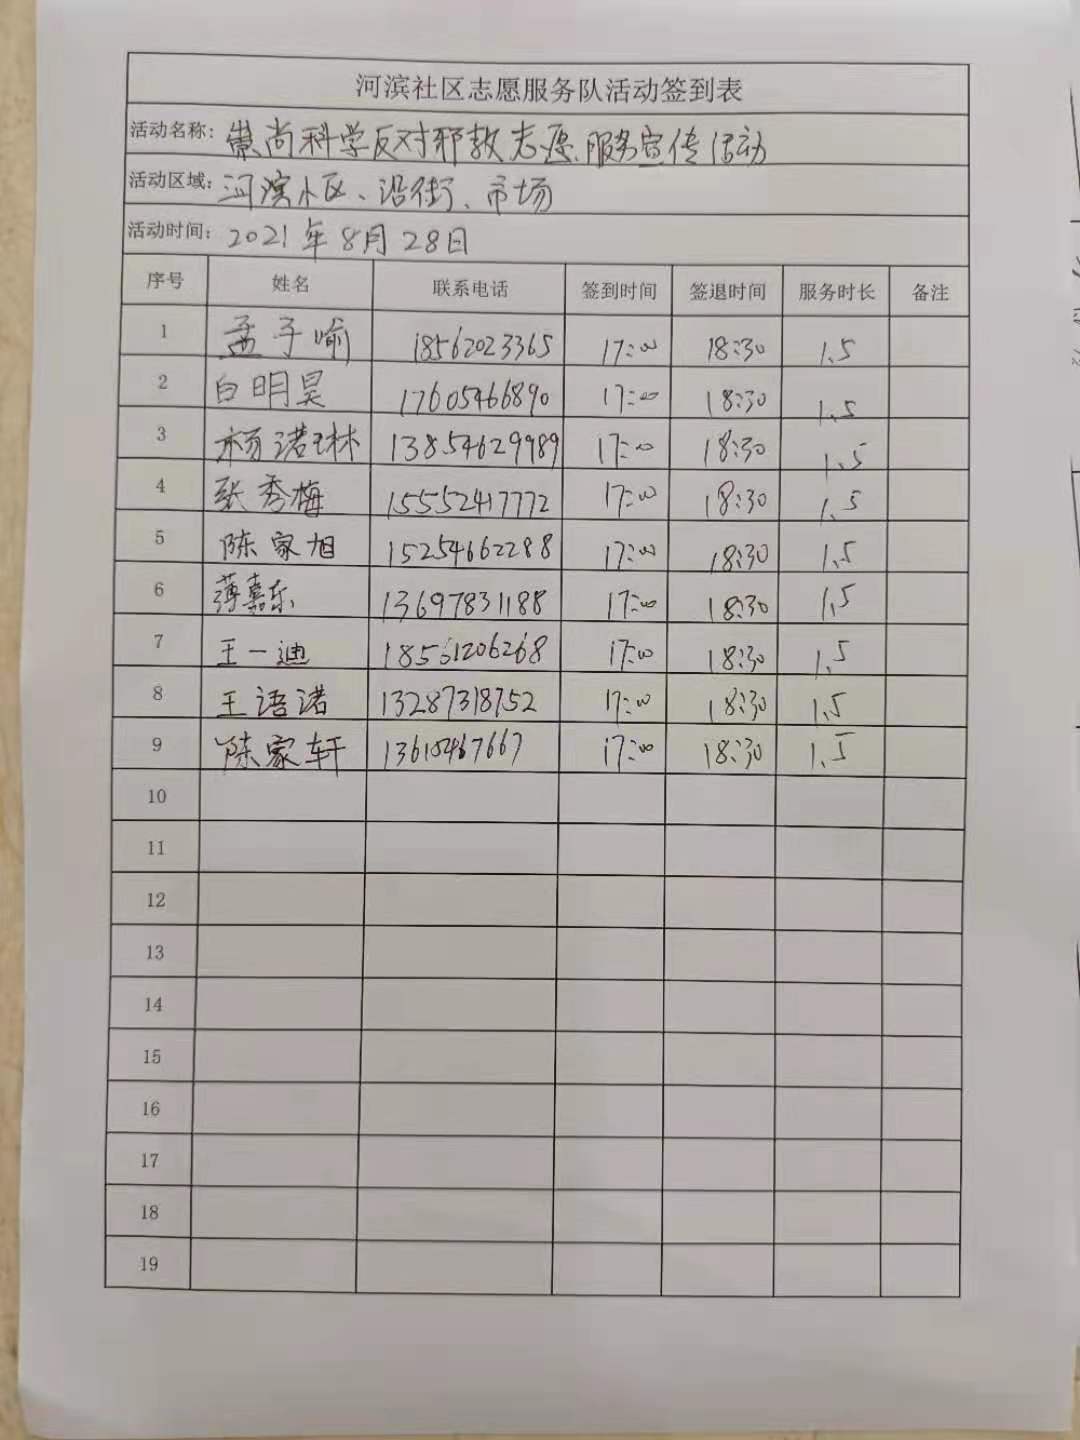 河滨社区志愿服务队活动签到表
活动名称：崇尚科学反对邪教志愿服务宣传活动
活动区域：河滨小区、沿街、市场
活动时间：2021年8月28日
序号 姓名 联系电话 签到时间 签退时间 服务时长 备注
1 孟子喻 18562023365 17:00 18:30 1.5
2 白明昊 17605466890 17:00 18:30 1.5
3 杨诺琳 13854629989 17:00 18:30 1.5
4 张秀梅 15552417772 17:00 18:30 1.5
5 陈家旭 15254662288 17:00 18:30 1.5
6 薄嘉东 13697831188 17:00 18:30 1.5
7 王一迪 18561206268 17:00 18:30 1.5
8 王语诺 13287318752 17:00 18:30 1.5
9 陈家轩 13615467667 17:00 18:30 1.5
10
11
12
13
14
15
16
17
18
19